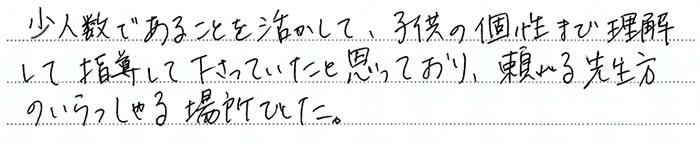 少人数であることを活かして、子供の個性まで理解
して指導して下さっていたと思っており、頼れる先生方
のいらっしゃる場所でした。